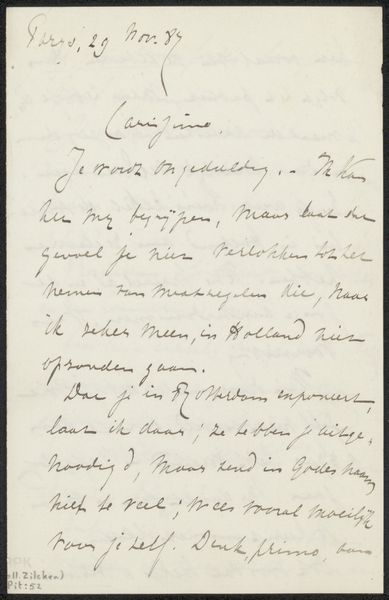 Parijs, 29 Nov. 87
Carissimo.
Je wordt ongeduldig. - Ik kan
het mij begrijpen, maar laat dat
gevoel je niet verlokken tot het
nemen van maatregelen die, naar
ik zeker meen, in Holland niet
opzouden gaan.
Dat je in Rotterdam exposeert,
laat ik daar; ze hebben je uitge-
noodigd, maar zend in Godes naam
niet te veel; wees vooral moeilijk
voor je zelf. Denk, primo, aan
Zilcken)
Pit: 52